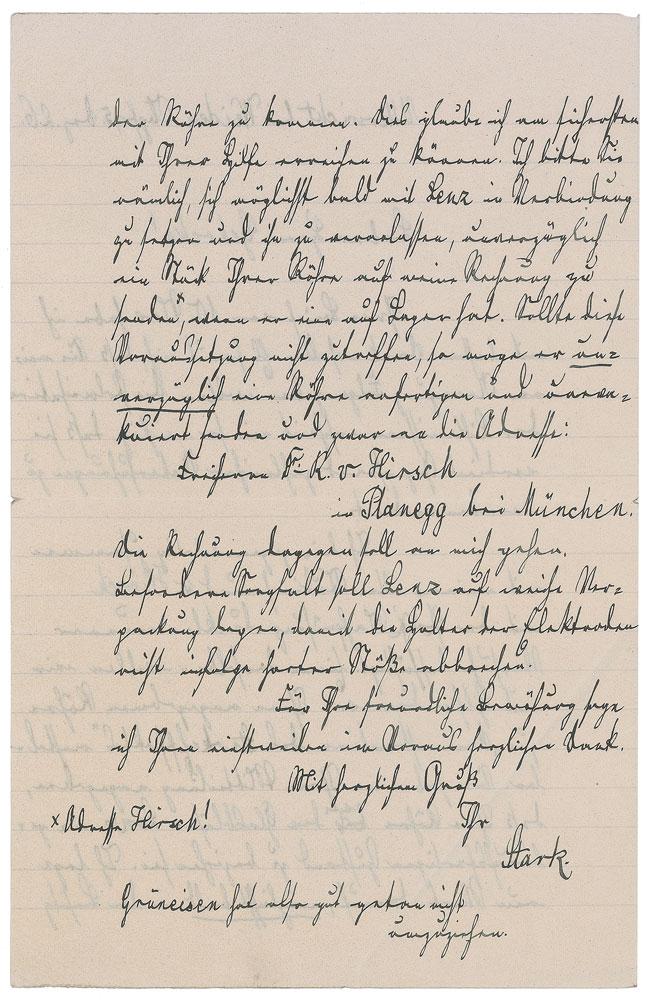 der Röhre zu kommen. Dies glaube ich am sichersten
mit Ihrer Hilfe erreichen zu können. Ich bitte Sie
nämlich, sich möglichst bald mit Lenz in Verbindung
zu setzen und ihn zu veranlassen, unverzüglich
ein Stück Ihrer Röhre auf meine Rechnung zu
senden,ˣ wenn er eine auf Lager hat. Sollte diese
Voraussetzung nicht zutreffen, so möge er un=
verzüglich eine Röhre anfertigen und uneva=
kuiert senden und zwar an die Adresse:
Freiherrn F. K. v. Hirsch
in Planegg bei München.
Die Rechnung dagegen soll an mich gehen.
Besondere Sorgfalt soll Lenz auf weiche Ver=
packung legen, damit die Halter der Elektroden
nicht infolge harter Stöße abbrechen.
Für Ihre freundliche Bemühung sage
ich Ihnen einstweilen im Voraus herzlichen Dank.
Mit herzlichem Gruß
x Adresse Hirsch! Ihr
Stark.
Grüneisen hat also gut getan nicht
umzuziehen.